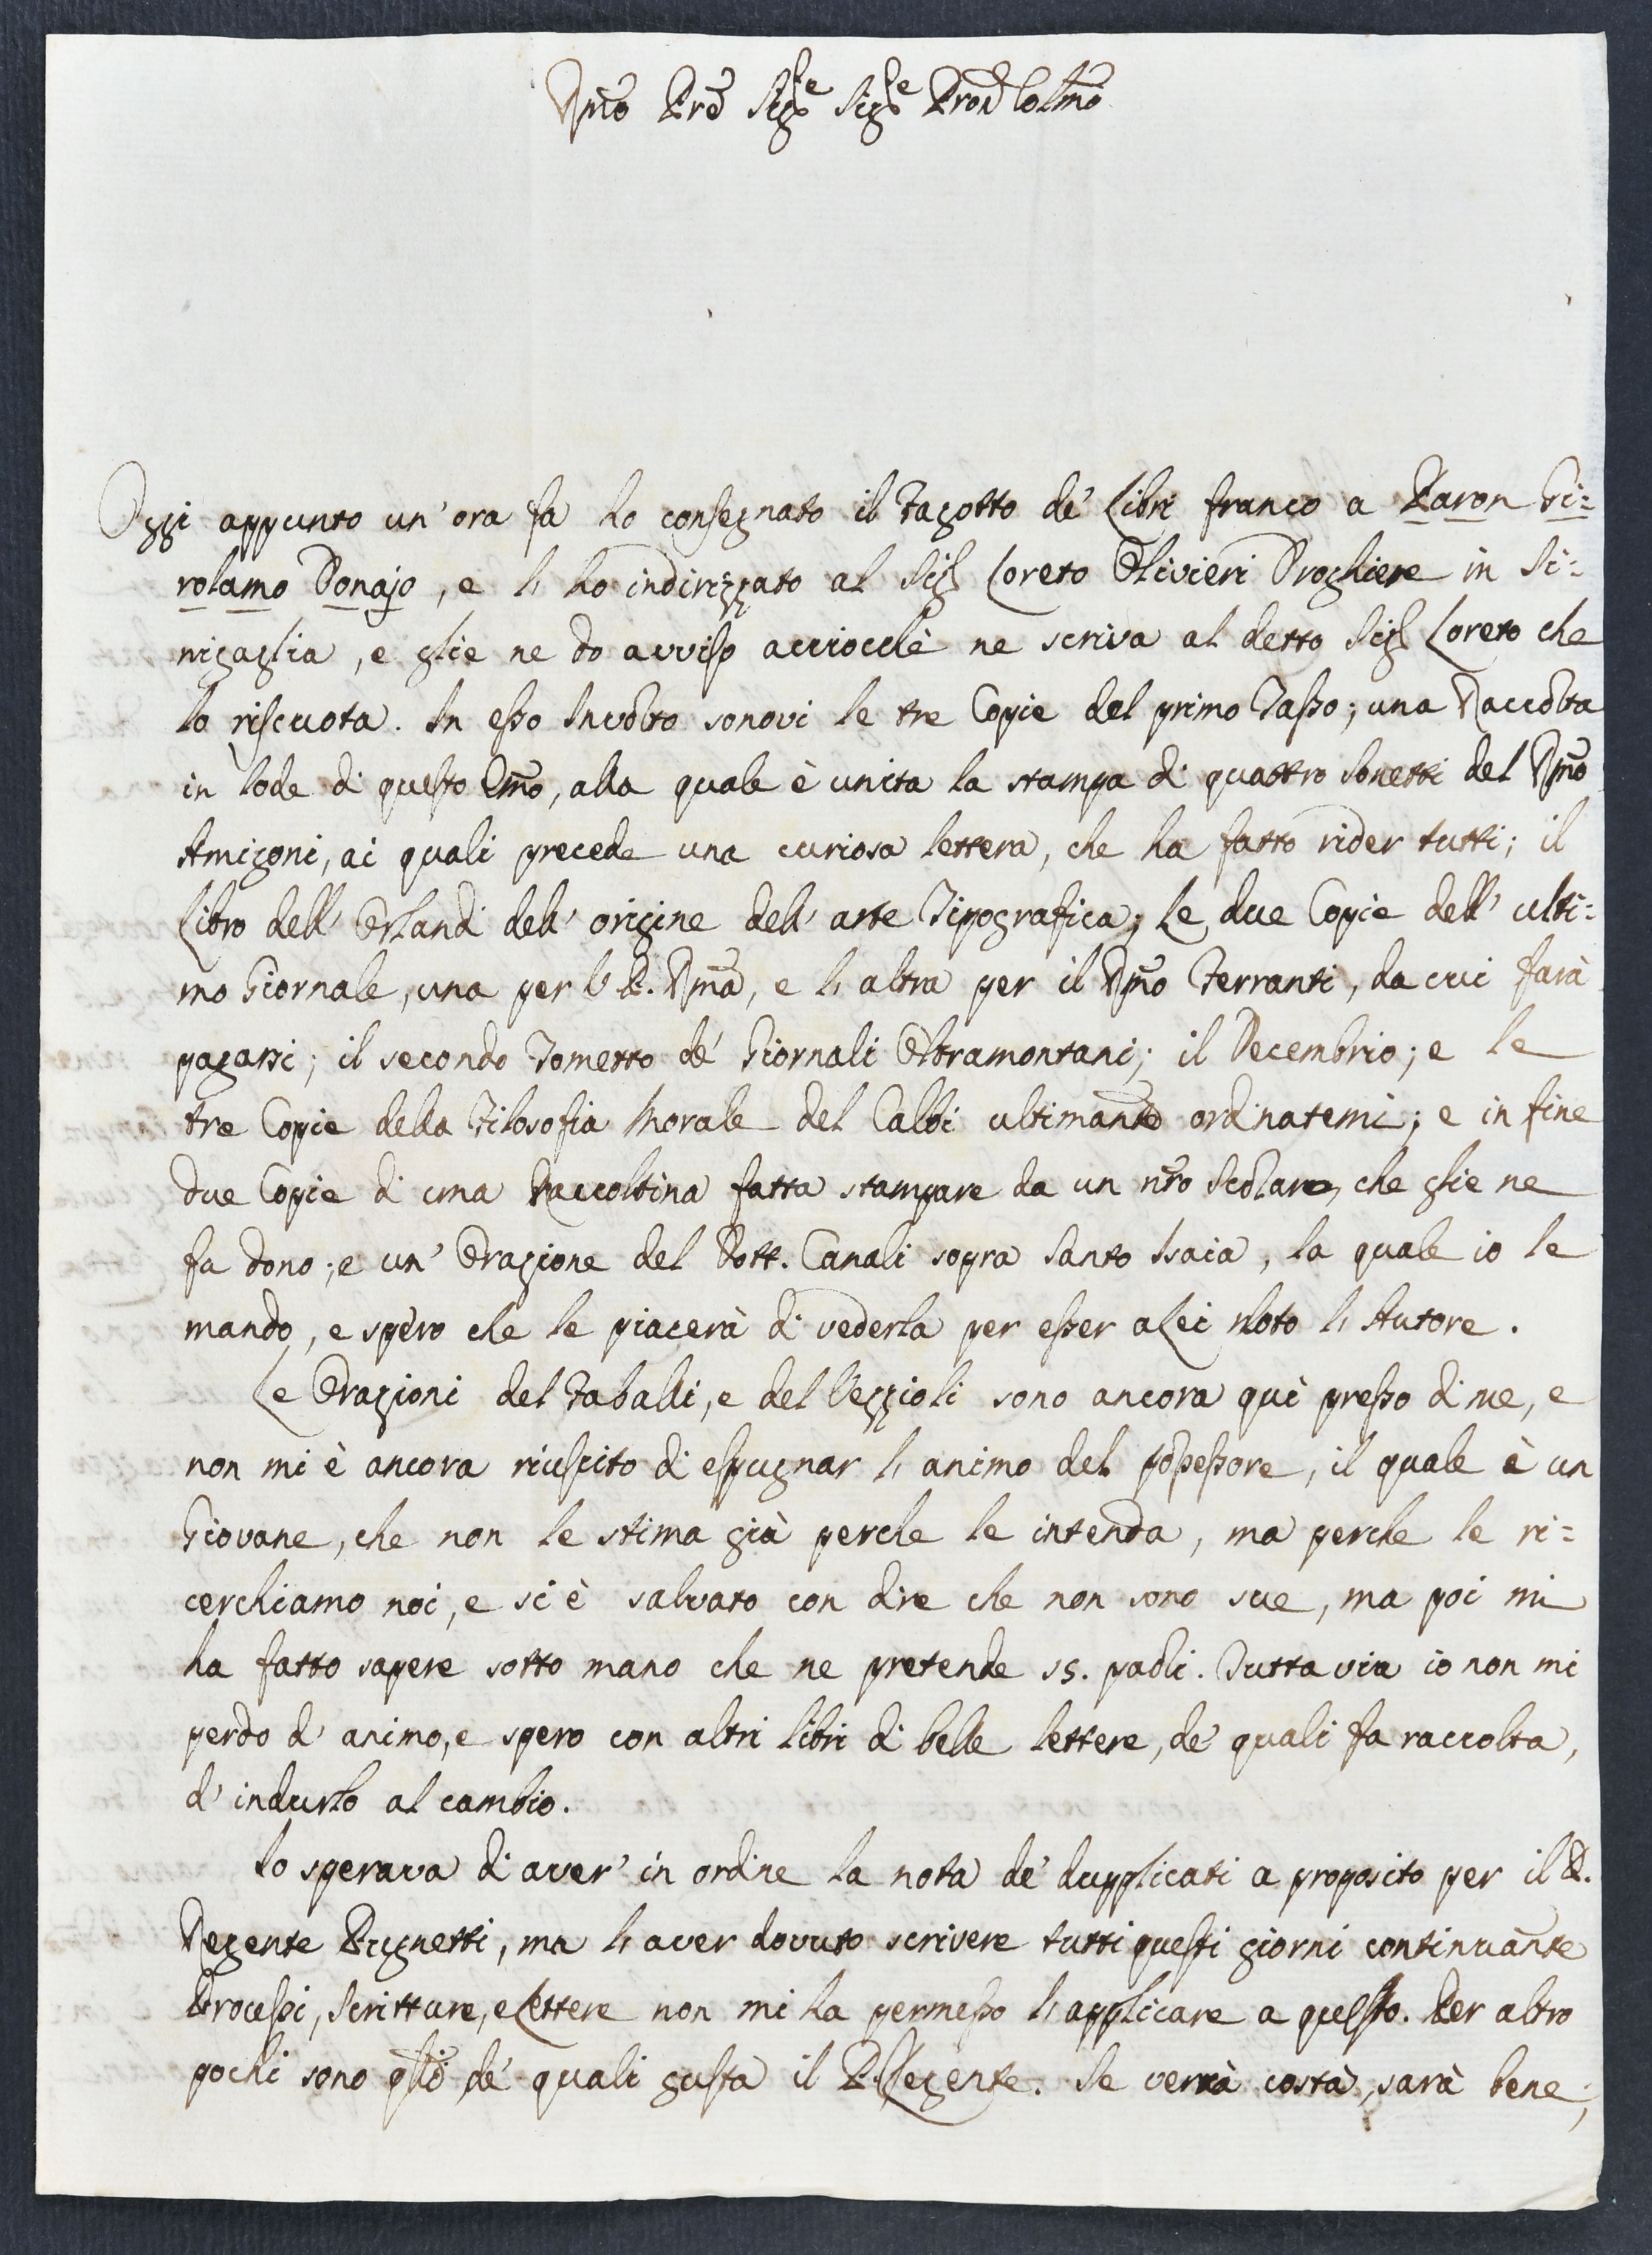 Rmo Pre Sigre Sigre Pron Colmo
Oggi appunto un' ora fa ho consegnato il Fagotto de' Libri franco a Paron Gi=
rolamo Donajo, e l' ho indirizzato al Sig. Loreto Olivieri Droghiere in Si=
nigaglia, e glie ne do avviso acciocchè ne scriva al detto Sig. Loreto che
lo riscuota. In esso Involto sonovi le tre Copie del primo Tasso; una Raccolta
in lode di questo Emo, alla quale è unita la stampa di quattro Sonetti del Rmo
Amigoni, ai quali precede una curiosa lettera, che ha fatto rider tutti; il
Libro dell' Orlandi dell' origine dell' arte Tipografica; Le due Copie dell' ulti=
mo Giornale, una per V. P. Rma, e l' altra per il Rmo Ferranti, da cui farà
pagarsi; il secondo Tometto de' Giornali Oltramontani; il Decembrio; e le
tre Copie della Filosofia Morale del Calbi ultimante ordinatemi; e in fine
due Copie di una Raccoltina fatta stampare da un nro Scolare, che glie ne
fa dono; e un' Orazione del Dott. Canali sopra Santo Isaia, la quale io le
mando, e spero che le piacerà di vederla per esser a Lei noto l' Autore.
Le Orazioni del Faballi, e del Vezzioli sono ancora quì presso di me, e
non mi è ancora riuscito di espugnar l' animo del possessore, il quale è un
Giovane, che non le stima già perche le intenda, ma perche le ri=
cerchiamo noi, e si è salvato con dire che non sono sue, ma poi mi
ha fatto sapere sotto mano che ne pretende 55. paoli. Tutta via io non mi
perdo d' animo, e spero con altri libri di belle lettere, de' quali fa raccolta,
d' indurlo al cambio.
Io sperava di aver' in ordine la nota de' dupplicati a proposito per il P.
Regente Pugnetti, ma l' aver dovuto scrivere tutti questi giorni continuante
Processi, Scritture, e Lettere non mi ha permesso l' applicare a questo. Per altro
pochi sono qlli de' quali gusta il P. Regente. Se verrà costà, sarà bene;